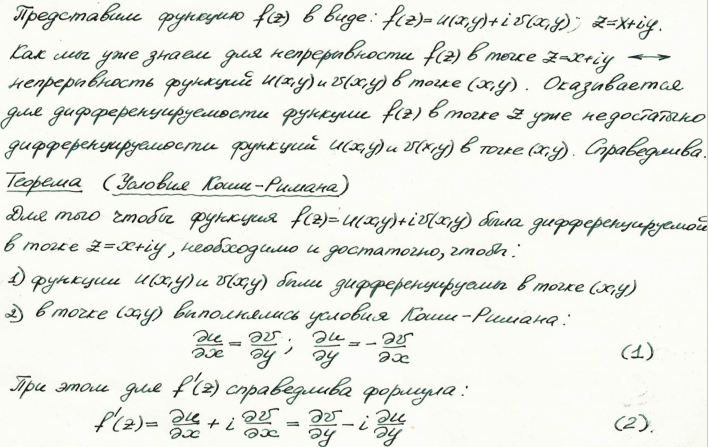 Представим функцию f(z) в виде: f(z)=u(x,y)+i v(x,y); z=x+iy.
Как мы уже знаем для непрерывности f(z) в точке z=x+iy ⟷
непрерывность функций u(x,y) и v(x,y) в точке (x,y). Оказывается
для дифференцируемости функции f(z) в точке z уже недостатно
дифференцируемости функций u(x,y) и v(x,y) в точке (x,y). Справедлива.
Теорема (Условия Коши-Римана)
Для того чтобы функция f(z)=u(x,y)+iv(x,y) была дифференцируемой
в точке z=x+iy, необходимо и достаточно, чтобы:
1) функции u(x,y) и v(x,y) были дифференцируемы в точке (x,y)
2) в точке (x,y) выполнялись условия Коши-Римана:
∂u/∂x = ∂v/∂y ; ∂u/∂y = - ∂v/∂x (1)
При этом для f'(z) справедлива формула:
f'(z)= ∂u/∂x + i ∂v/∂x = ∂v/∂y - i ∂u/∂y (2).